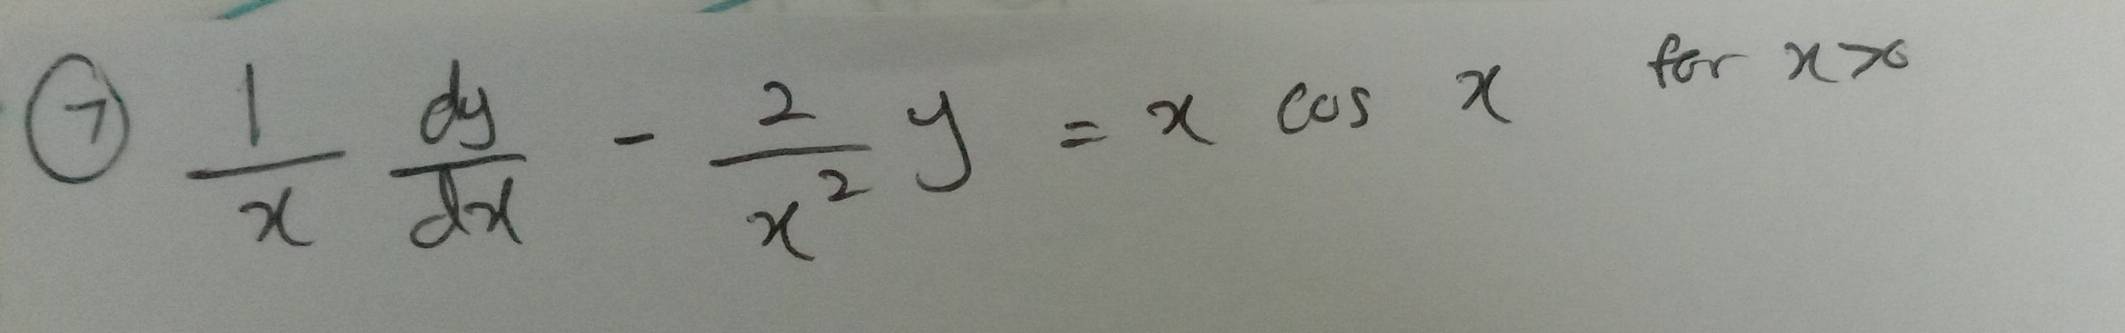 ⑦ 1/x dy/dx - 2/x² y = x cos x for x>0